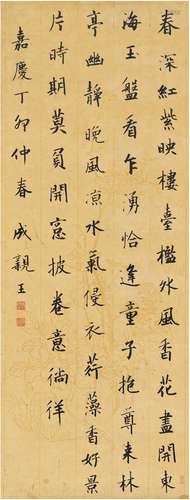 春深紅紫映樓臺檻外風香花盡開東
海玉盤看乍湧恰逢童子抱尊来林
亭幽靜晚風凉水氣侵衣荇藻香好景
片時期莫負開窓披卷意徜徉
嘉慶丁卯仲春 成親王